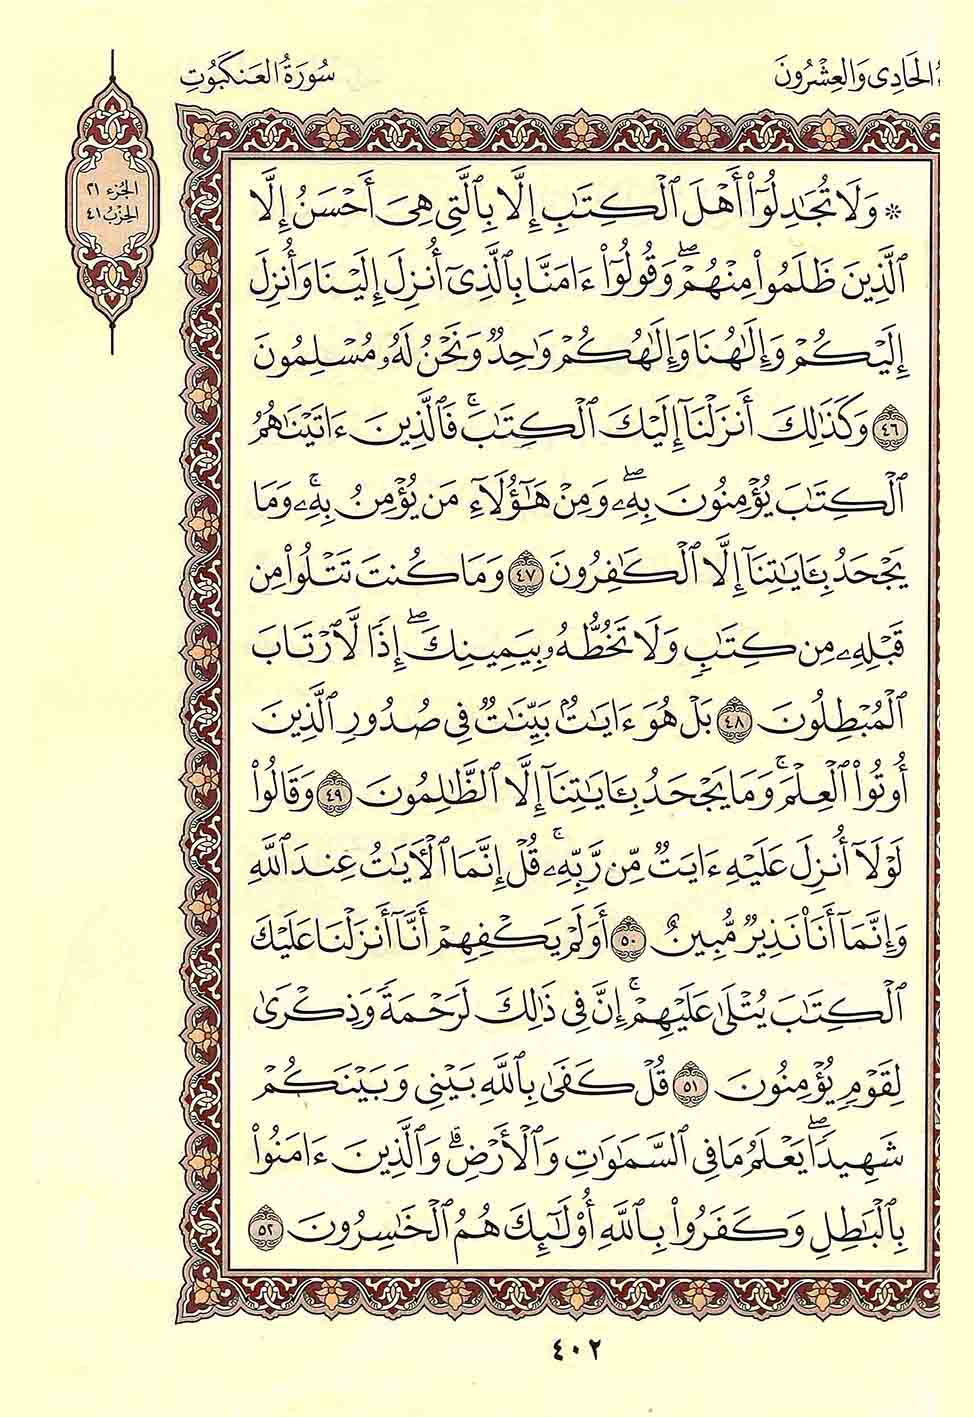 الحَادِى وَالعِشْرُونَ
سُورَةُ العَنكَبُوتِ
الجُزء ٢١
الحِزْب ٤١
* وَلَا تُجَٰدِلُوٓا۟ أَهْلَ ٱلْكِتَٰبِ إِلَّا بِٱلَّتِى هِىَ أَحْسَنُ إِلَّا
ٱلَّذِينَ ظَلَمُوا۟ مِنْهُمْ ۖ وَقُولُوٓا۟ ءَامَنَّا بِٱلَّذِىٓ أُنزِلَ إِلَيْنَا وَأُنزِلَ
إِلَيْكُمْ وَإِلَٰهُنَا وَإِلَٰهُكُمْ وَٰحِدٌ وَنَحْنُ لَهُۥ مُسْلِمُونَ
٤٦ وَكَذَٰلِكَ أَنزَلْنَآ إِلَيْكَ ٱلْكِتَٰبَ ۚ فَٱلَّذِينَ ءَاتَيْنَٰهُمُ
ٱلْكِتَٰبَ يُؤْمِنُونَ بِهِۦ ۖ وَمِنْ هَٰٓؤُلَآءِ مَن يُؤْمِنُ بِهِۦ ۚ وَمَا
يَجْحَدُ بِـَٔايَٰتِنَآ إِلَّا ٱلْكَٰفِرُونَ ٤٧ وَمَا كُنتَ تَتْلُوا۟ مِن
قَبْلِهِۦ مِن كِتَٰبٍ وَلَا تَخُطُّهُۥ بِيَمِينِكَ ۖ إِذًا لَّٱرْتَابَ
ٱلْمُبْطِلُونَ ٤٨ بَلْ هُوَ ءَايَٰتٌۢ بَيِّنَٰتٌ فِى صُدُورِ ٱلَّذِينَ
أُوتُوا۟ ٱلْعِلْمَ ۚ وَمَا يَجْحَدُ بِـَٔايَٰتِنَآ إِلَّا ٱلظَّٰلِمُونَ ٤٩ وَقَالُوا۟
لَوْلَآ أُنزِلَ عَلَيْهِ ءَايَٰتٌ مِّن رَّبِّهِۦ ۚ قُلْ إِنَّمَا ٱلْءَايَٰتُ عِندَ ٱللَّهِ
وَإِنَّمَآ أَنَا۠ نَذِيرٌ مُّبِينٌ ٥٠ أَوَلَمْ يَكْفِهِمْ أَنَّآ أَنزَلْنَا عَلَيْكَ
ٱلْكِتَٰبَ يُتْلَىٰ عَلَيْهِمْ ۚ إِنَّ فِى ذَٰلِكَ لَرَحْمَةً وَذِكْرَىٰ
لِقَوْمٍ يُؤْمِنُونَ ٥١ قُلْ كَفَىٰ بِٱللَّهِ بَيْنِى وَبَيْنَكُمْ
شَهِيدًا ۖ يَعْلَمُ مَا فِى ٱلسَّمَٰوَٰتِ وَٱلْأَرْضِ ۗ وَٱلَّذِينَ ءَامَنُوا۟
بِٱلْبَٰطِلِ وَكَفَرُوا۟ بِٱللَّهِ أُو۟لَٰٓئِكَ هُمُ ٱلْخَٰسِرُونَ ٥٢
٤٠٢